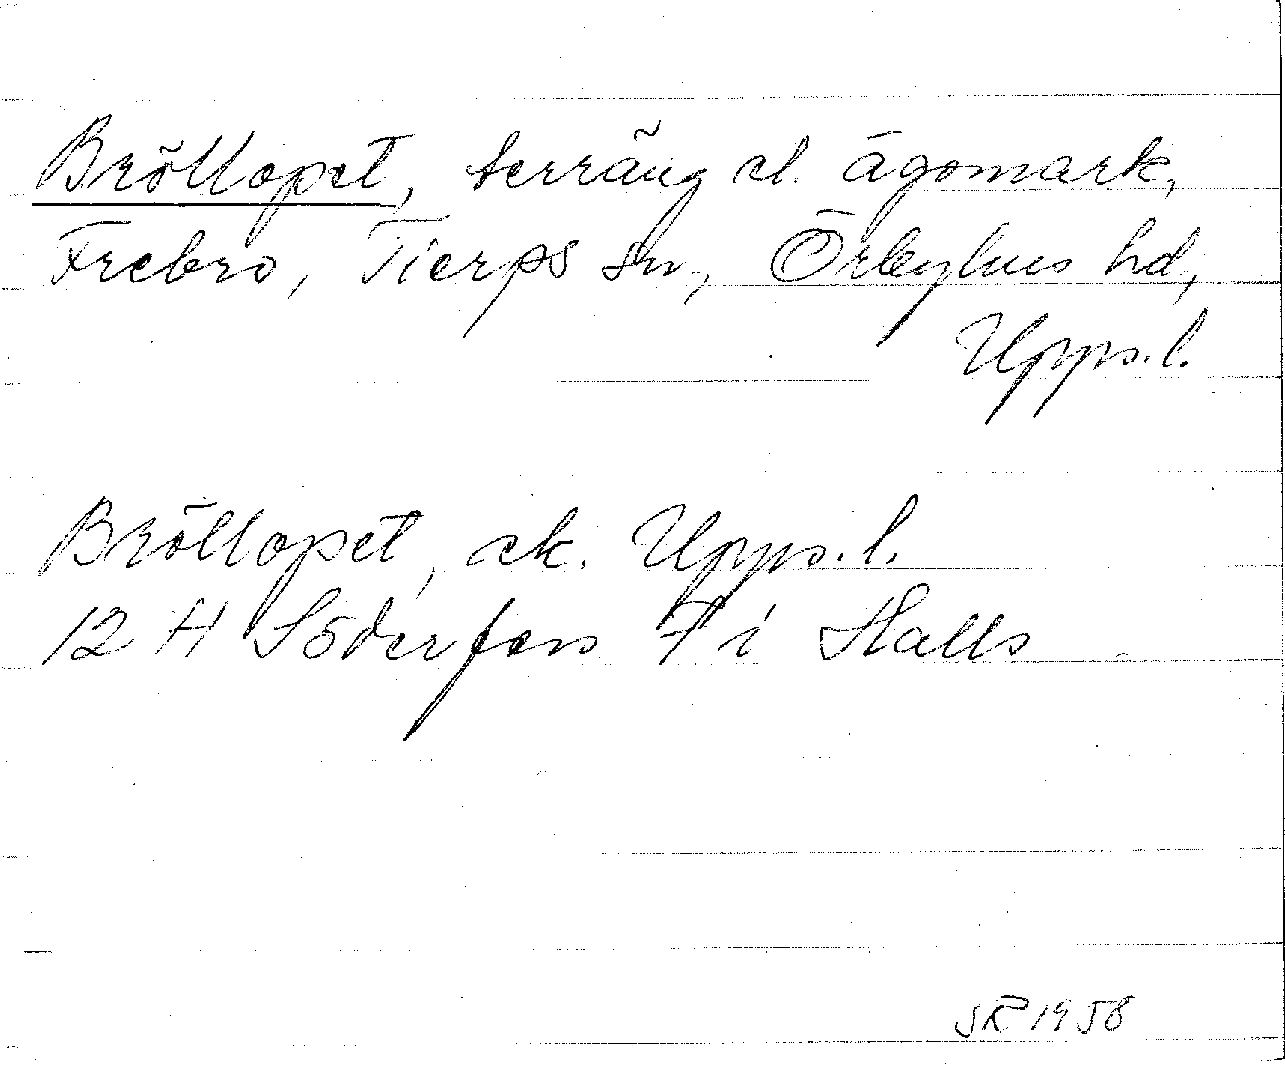 Bröllopet, terräng el. ägomark,
Frebro, Tierps sn, Örbyhus hd,
Upps.l.
Bröllopet, ek. Upps.l.
12 H Söderfors 7 i Halls
SR 1958